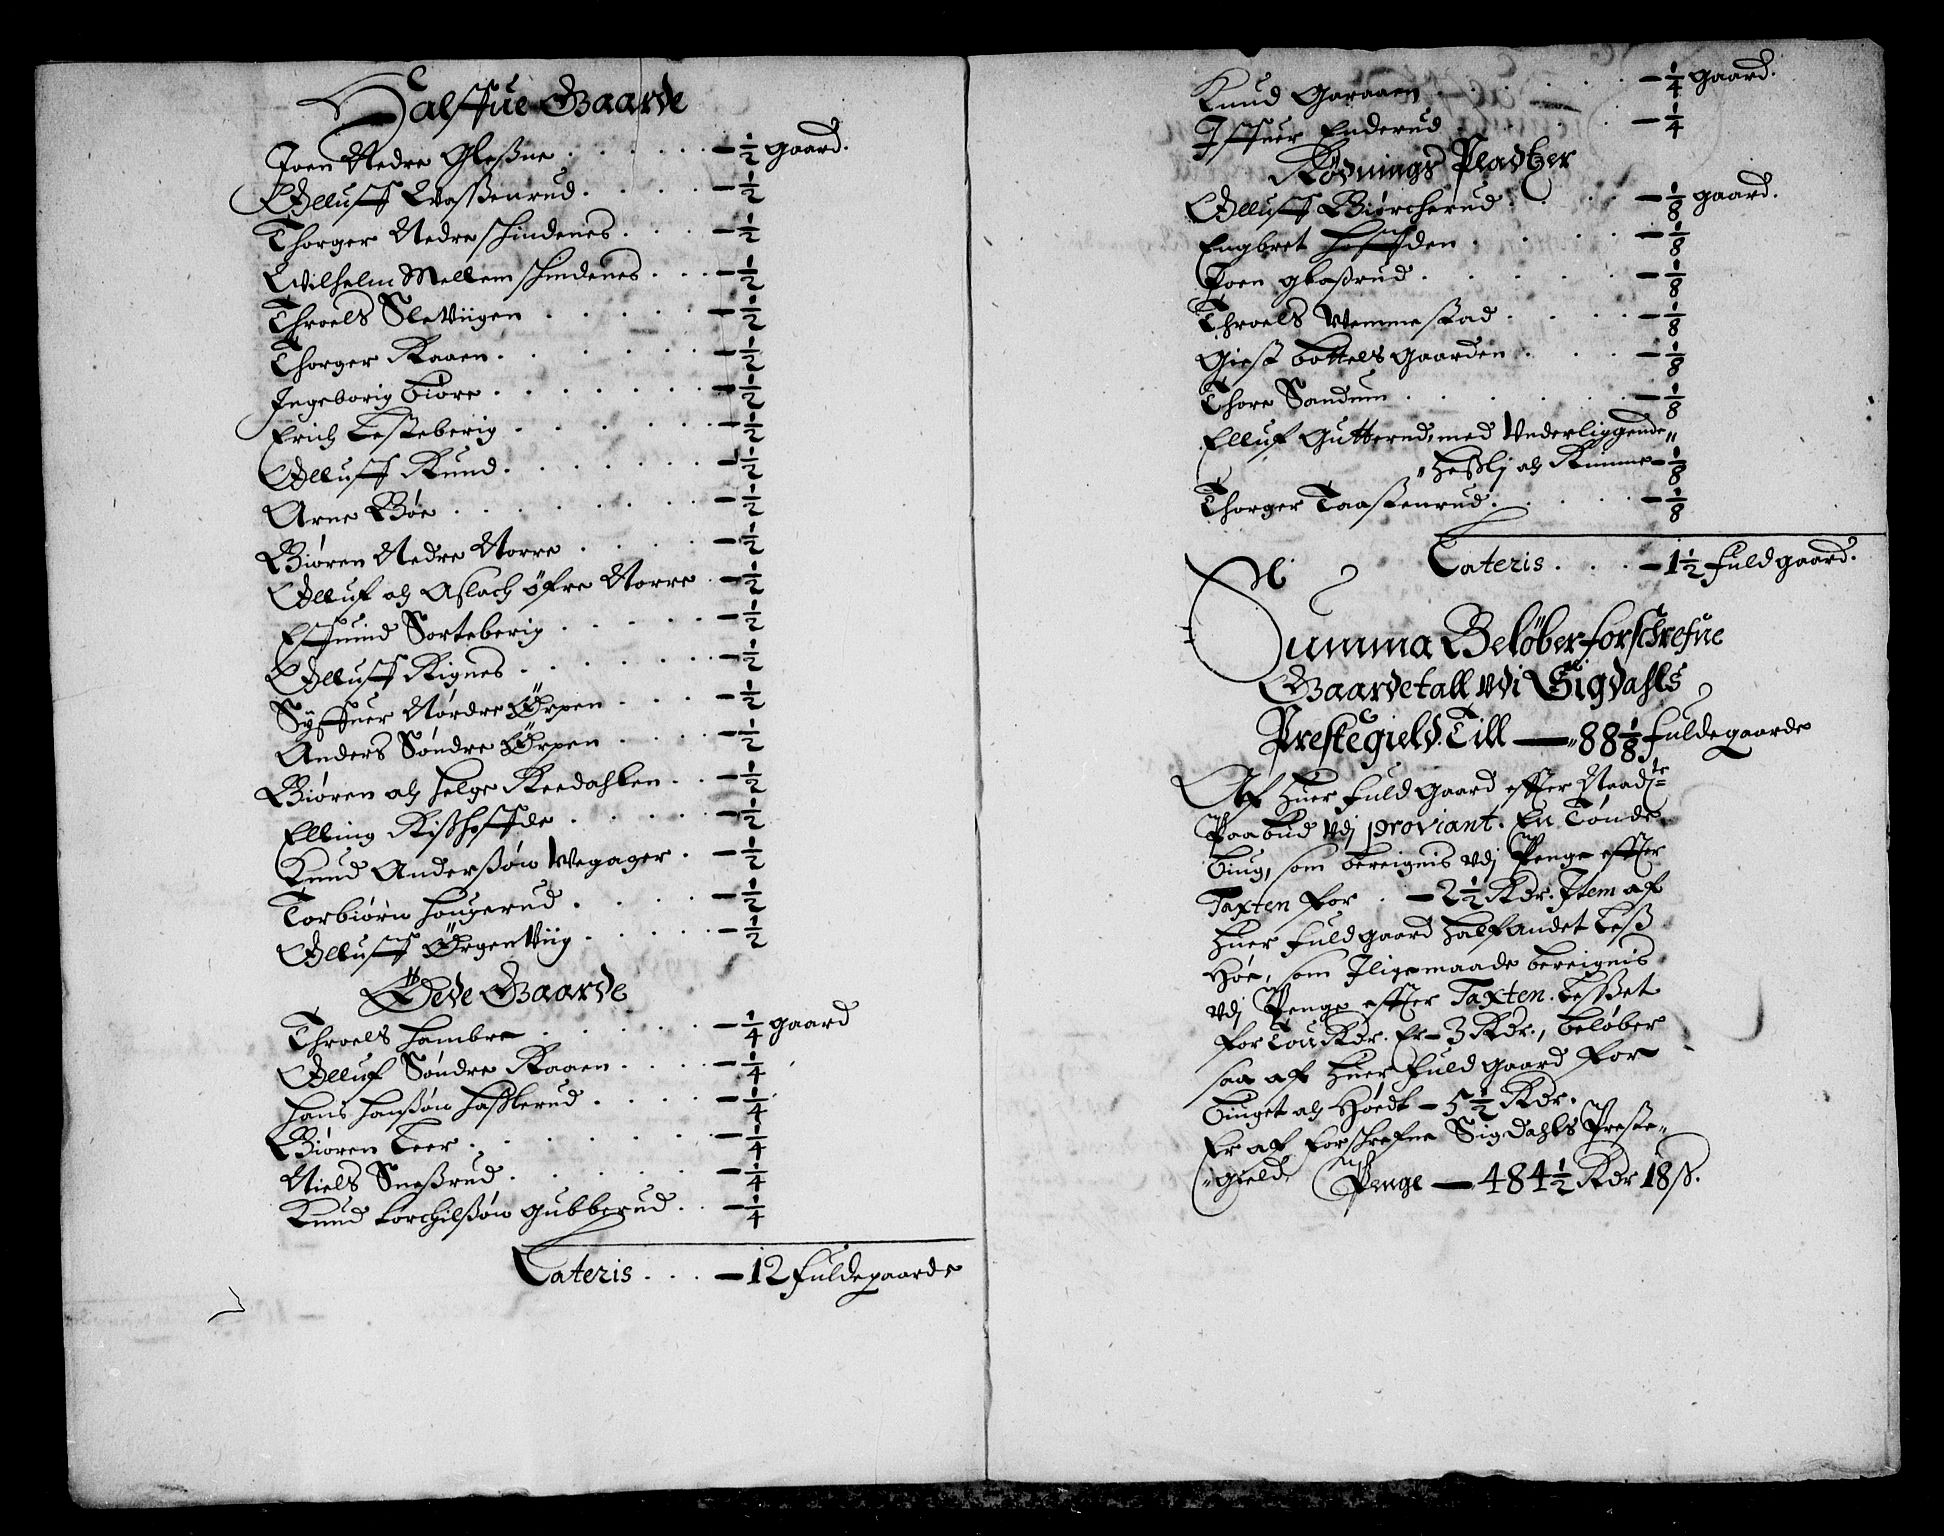 Halffue Gaarde
Joen Nedre Gleßne . . . . . . — ½ gaard.
Olluff Waßenrud . . . . . — ½
Thorger Nedre schindenes . . . — ½
Wilhelm Mellem schindenes . . . — ½
Throels Sleviigen . . . . . — ½
Thorger Kaaen . . . . . . — ½
Ingeborig Biøre . . . . . . — ½
Erich Testeberig . . . . . . — ½
Olluff Rund . . . . . . . — ½
Arne Bøe . . . . . . . — ½
Biøren Nedre Norre . . . . — ½
Olluf och Aslach øfre Norre . — ½
Effuind Sorteberig . . . . . — ½
Olluff Rignes . . . . . . — ½
Syffuer Nørdre Ørpen . . . — ½
Anders Søndre Ørpen . . . . — ½
Biøren och helge Reedahlen . . — ½
Elling Rißhoffde . . . . . — ½
Knud Anderßøn Wegager . — ½
Torbiørn hougerud . . . . . — ½
Olluff Ørgenviig . . . . . — ½
Øede Gaarde
Throels hambre . . . . . — ¼ gaard
Olluf Søndre Kaaen . . . . — ¼
hans hanßøn haßlerud . . . . — ¼
Biøren Leer . . . . . . . — ¼
Niels Sneßrud . . . . . . — ¼
Knud torchilßøn gubberud . . — ¼
Lateris . . . — 12 fuldegaarde
Knud Garaaen . . . . . — ¼ gaard.
Iffuer Enderud . . . . . — ¼
Rødnings Pladtzer
Olluff Biørcherud . . . . — ⅛ gaard.
Engbret hoffden . . . . . — ⅛
Joen glaßrud . . . . . . — ⅛
Throels Wemmestad . . . . — ⅛
Giest bottels gaarden . . . — ⅛
Thore Sandum . . . . . . — ⅛
Elluf Gutterud, med Underliggende
heßlj och Rimme — ⅛
Thorger Taaßenrud . . . . — ⅛
Lateris . . . — 1½ fuldgaard.
Summa Beløber forschrefne
Gaardetall udi Sigdahls
Prestegield. Till — 88⅛ fuldegaarde
Af huer fuld gaard effter Naadste
Paabud udj proviant. En Tønde
Biug, som bereignis udj Penge effter
Taxten for . — 2½ Rdr. Item af
huer fuld gaard halfandet Leß
Høe, som Iligemaade bereignis
udj Penge effter Taxten. Leßet
for Tou Rdr. Er — 3 Rdr., beløber
saa af huer fuld gaard for
Biuget och Høedt — 5½ Rdr.
Er af forschrefne Sigdahls Preste-
gield Penge — 484½ Rdr 18 s.